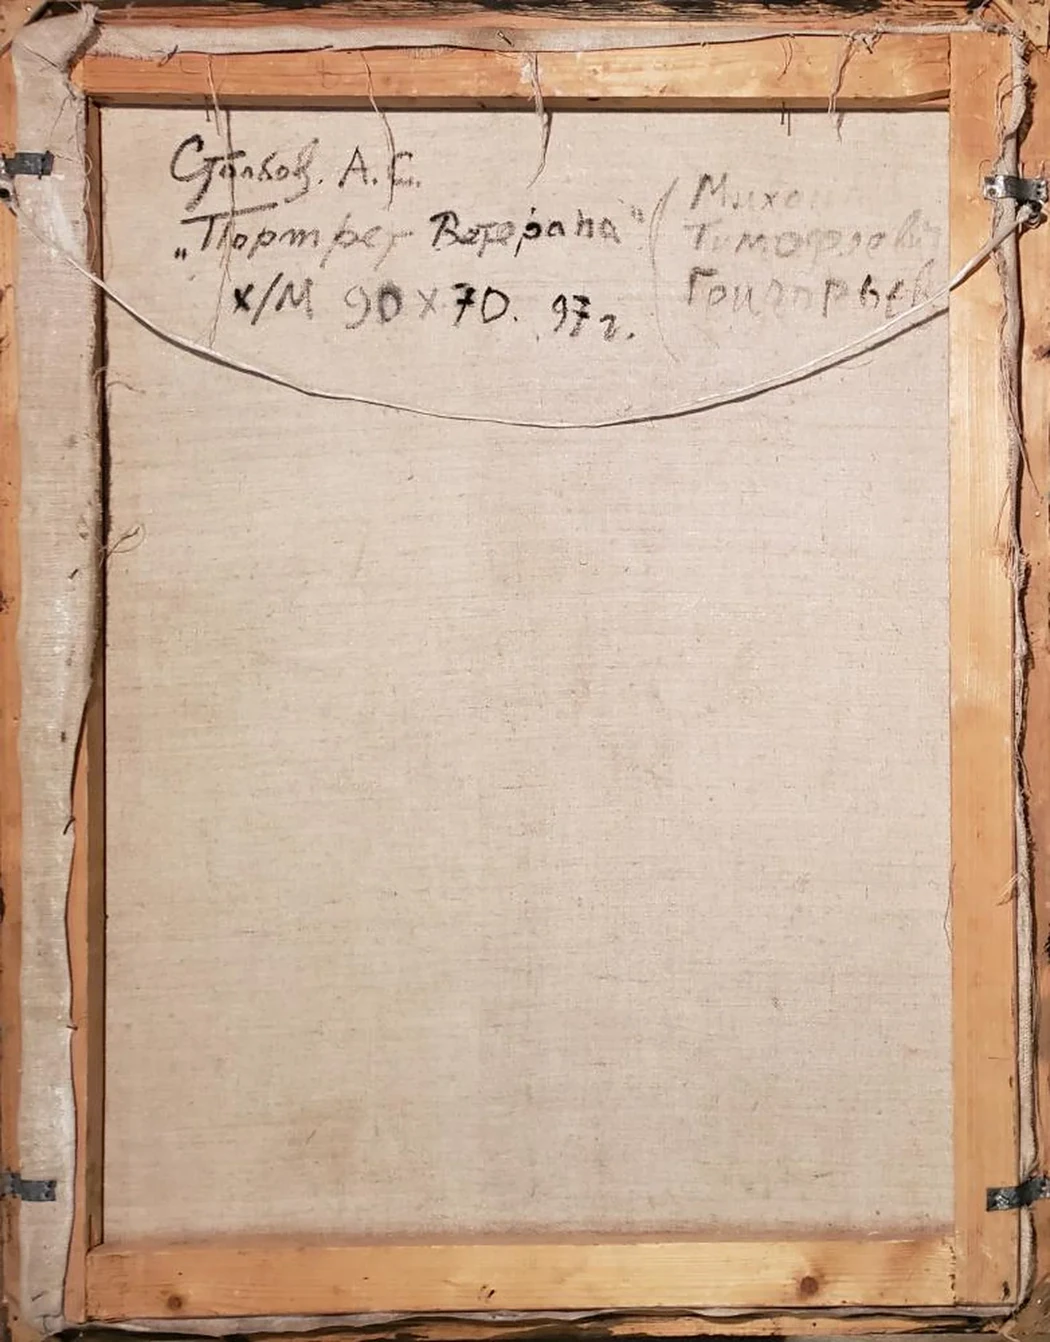 Столбов. А.С.
„Портрет Ветерана" (Михаил
Тимофеевич
х/м 90 х 70. 97 г.